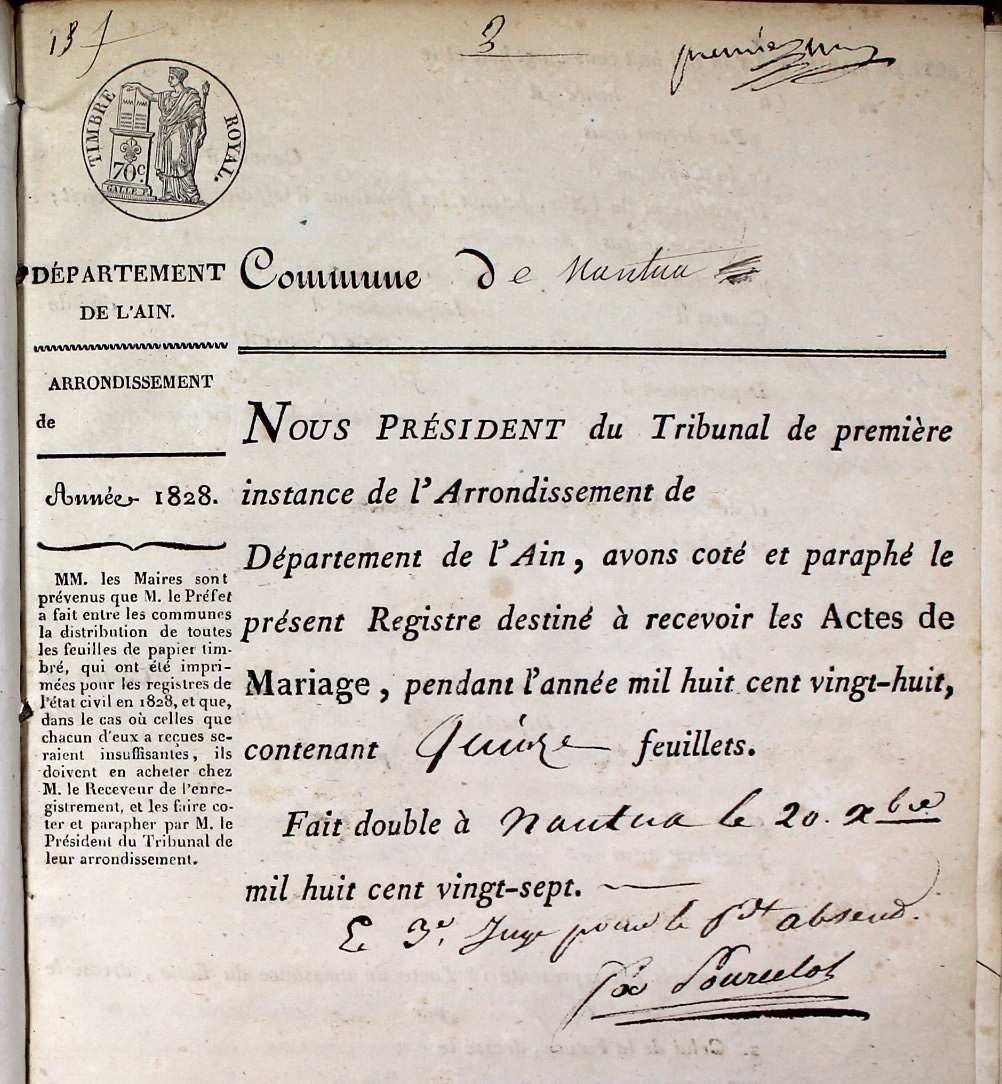 13
3
première
TIMBRE ROYAL.
70c.
DÉPARTEMENT
DE L'AIN.
ARRONDISSEMENT
de
Année 1828.
MM. les Maires sont
prévenus que M. le Préfet
a fait entre les communes
la distribution de toutes
les feuilles de papier tim-
bré, qui ont été impri-
mées pour les registres de
l'état civil en 1828, et que,
dans le cas où celles que
chacun d'eux a reçues se-
raient insuffisantes, ils
doivent en acheter chez
M. le Receveur de l'enre-
gistrement, et les faire co-
ter et parapher par M. le
Président du Tribunal de
leur arrondissement.
Commune de Nantua
NOUS PRÉSIDENT du Tribunal de première
instance de l'Arrondissement de
Département de l'Ain, avons coté et paraphé le
présent Registre destiné à recevoir les Actes de
Mariage, pendant l'année mil huit cent vingt-huit,
contenant Quinze feuillets.
Fait double à Nantua le 20. xbre
mil huit cent vingt-sept.
Le 3e. Juge pour le pdt absend.